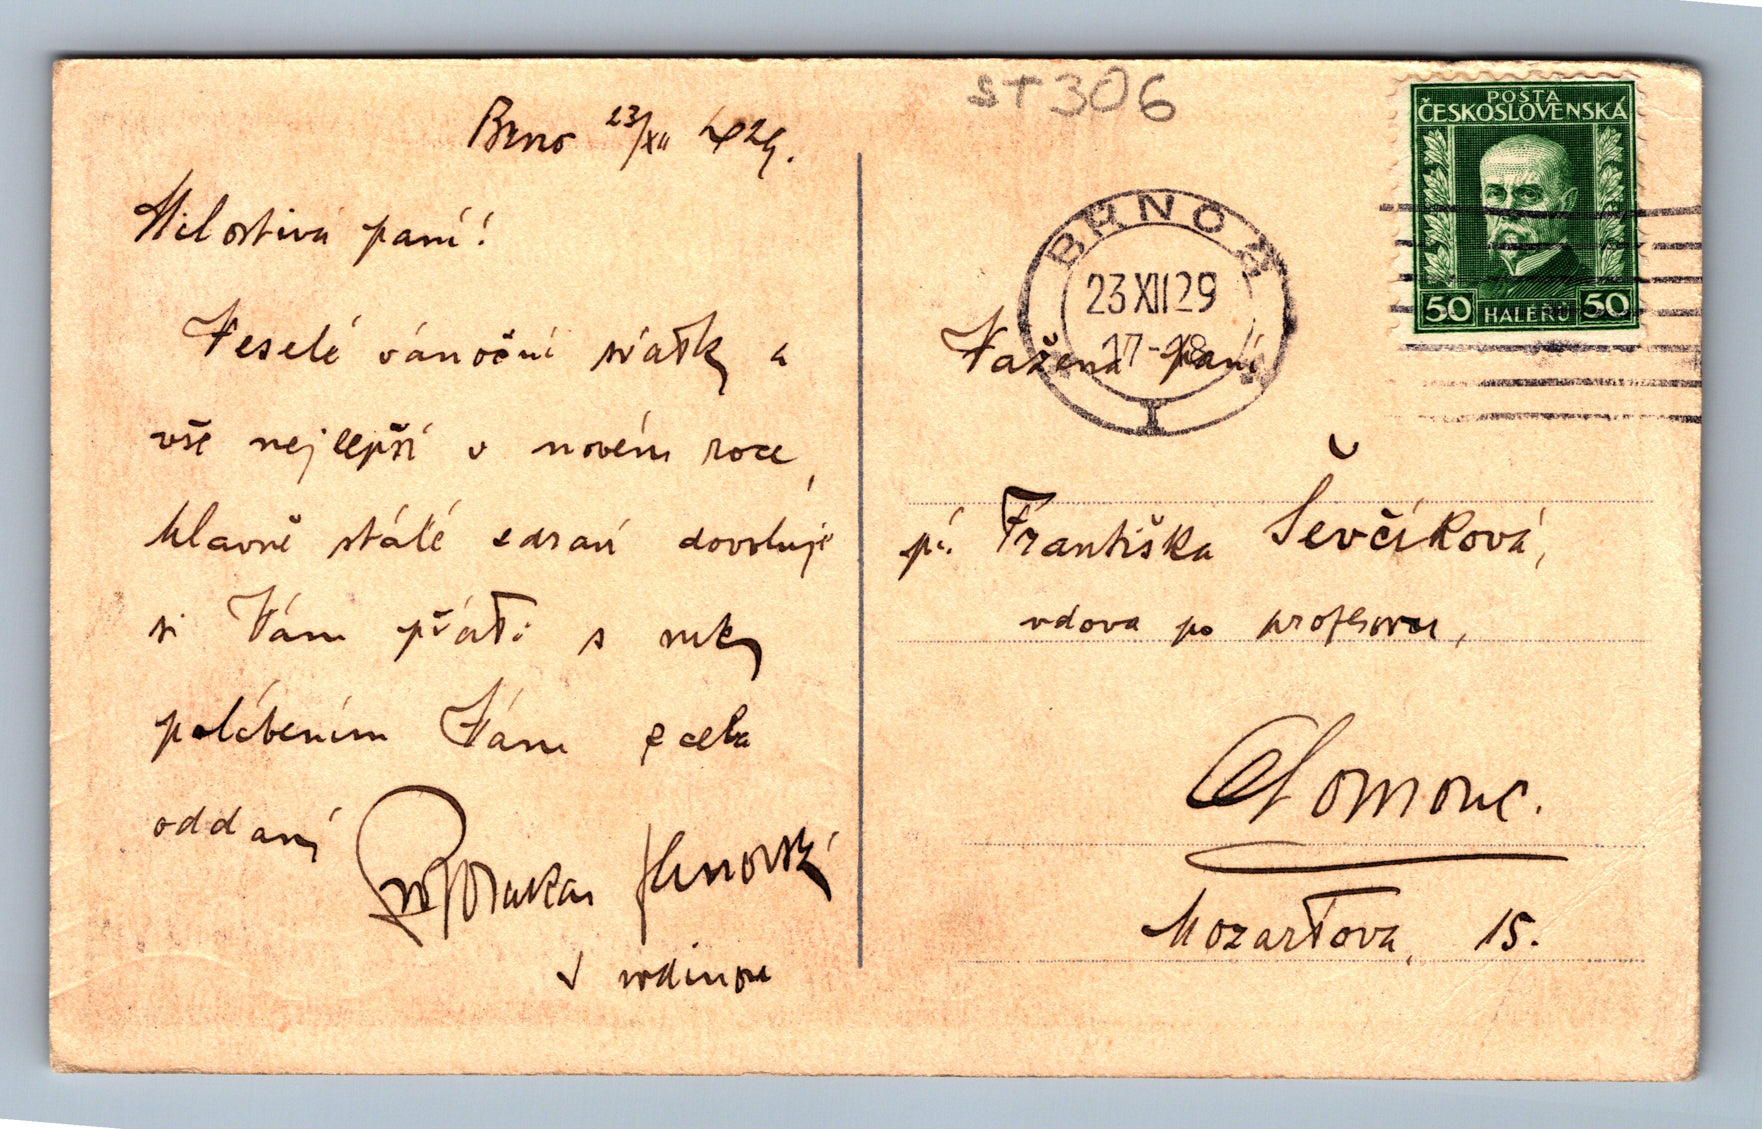 Brno 23/XII 929.
Milostivá paní!
Veselé vánoční svátky a
vše nejlepší v novém roce,
hlavně stálé zdraví dovoluje
si Vám přáti s ruky
políbením Vám zcela
oddaný
s rodinou
ST306
POSTA
ČESKOSLOVENSKÁ
50 HALÉŘŮ 50
BRNO 2
23 XII 29
17-18
I
Vážená paní
pí. Františka Ševčíková,
vdova po profesoru,
Olomouc.
Mozartova, 15.